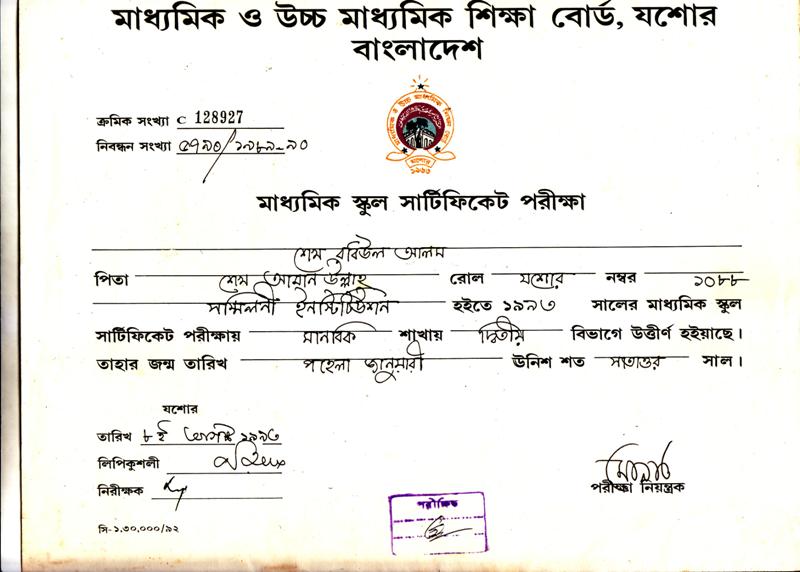 মাধ্যমিক ও উচ্চ মাধ্যমিক শিক্ষা বোর্ড, যশোর
বাংলাদেশ
ক্রমিক সংখ্যা C 128927
নিবন্ধন সংখ্যা ৫৭৯০/১৯৮৯-৯০
মাধ্যমিক স্কুল সার্টিফিকেট পরীক্ষা
শেখ রবিউল আলম
পিতা শেখ আমান উল্লাহ রোল যশোর নম্বর ১০৮৮
সম্মিলনী ইনস্টিটিউশন হইতে ১৯৯৩ সালের মাধ্যমিক স্কুল
সার্টিফিকেট পরীক্ষায় মানবিক শাখায় দ্বিতীয় বিভাগে উত্তীর্ণ হইয়াছে।
তাহার জন্ম তারিখ পহেলা জানুয়ারী ঊনিশ শত সাতাত্তর সাল।
যশোর
তারিখ ৮ই আগস্ট ১৯৯৩
লিপিকুশলী
নিরীক্ষক
পরীক্ষা নিয়ন্ত্রক
সি-১,৩০,০০০/৯২
পরীক্ষিত